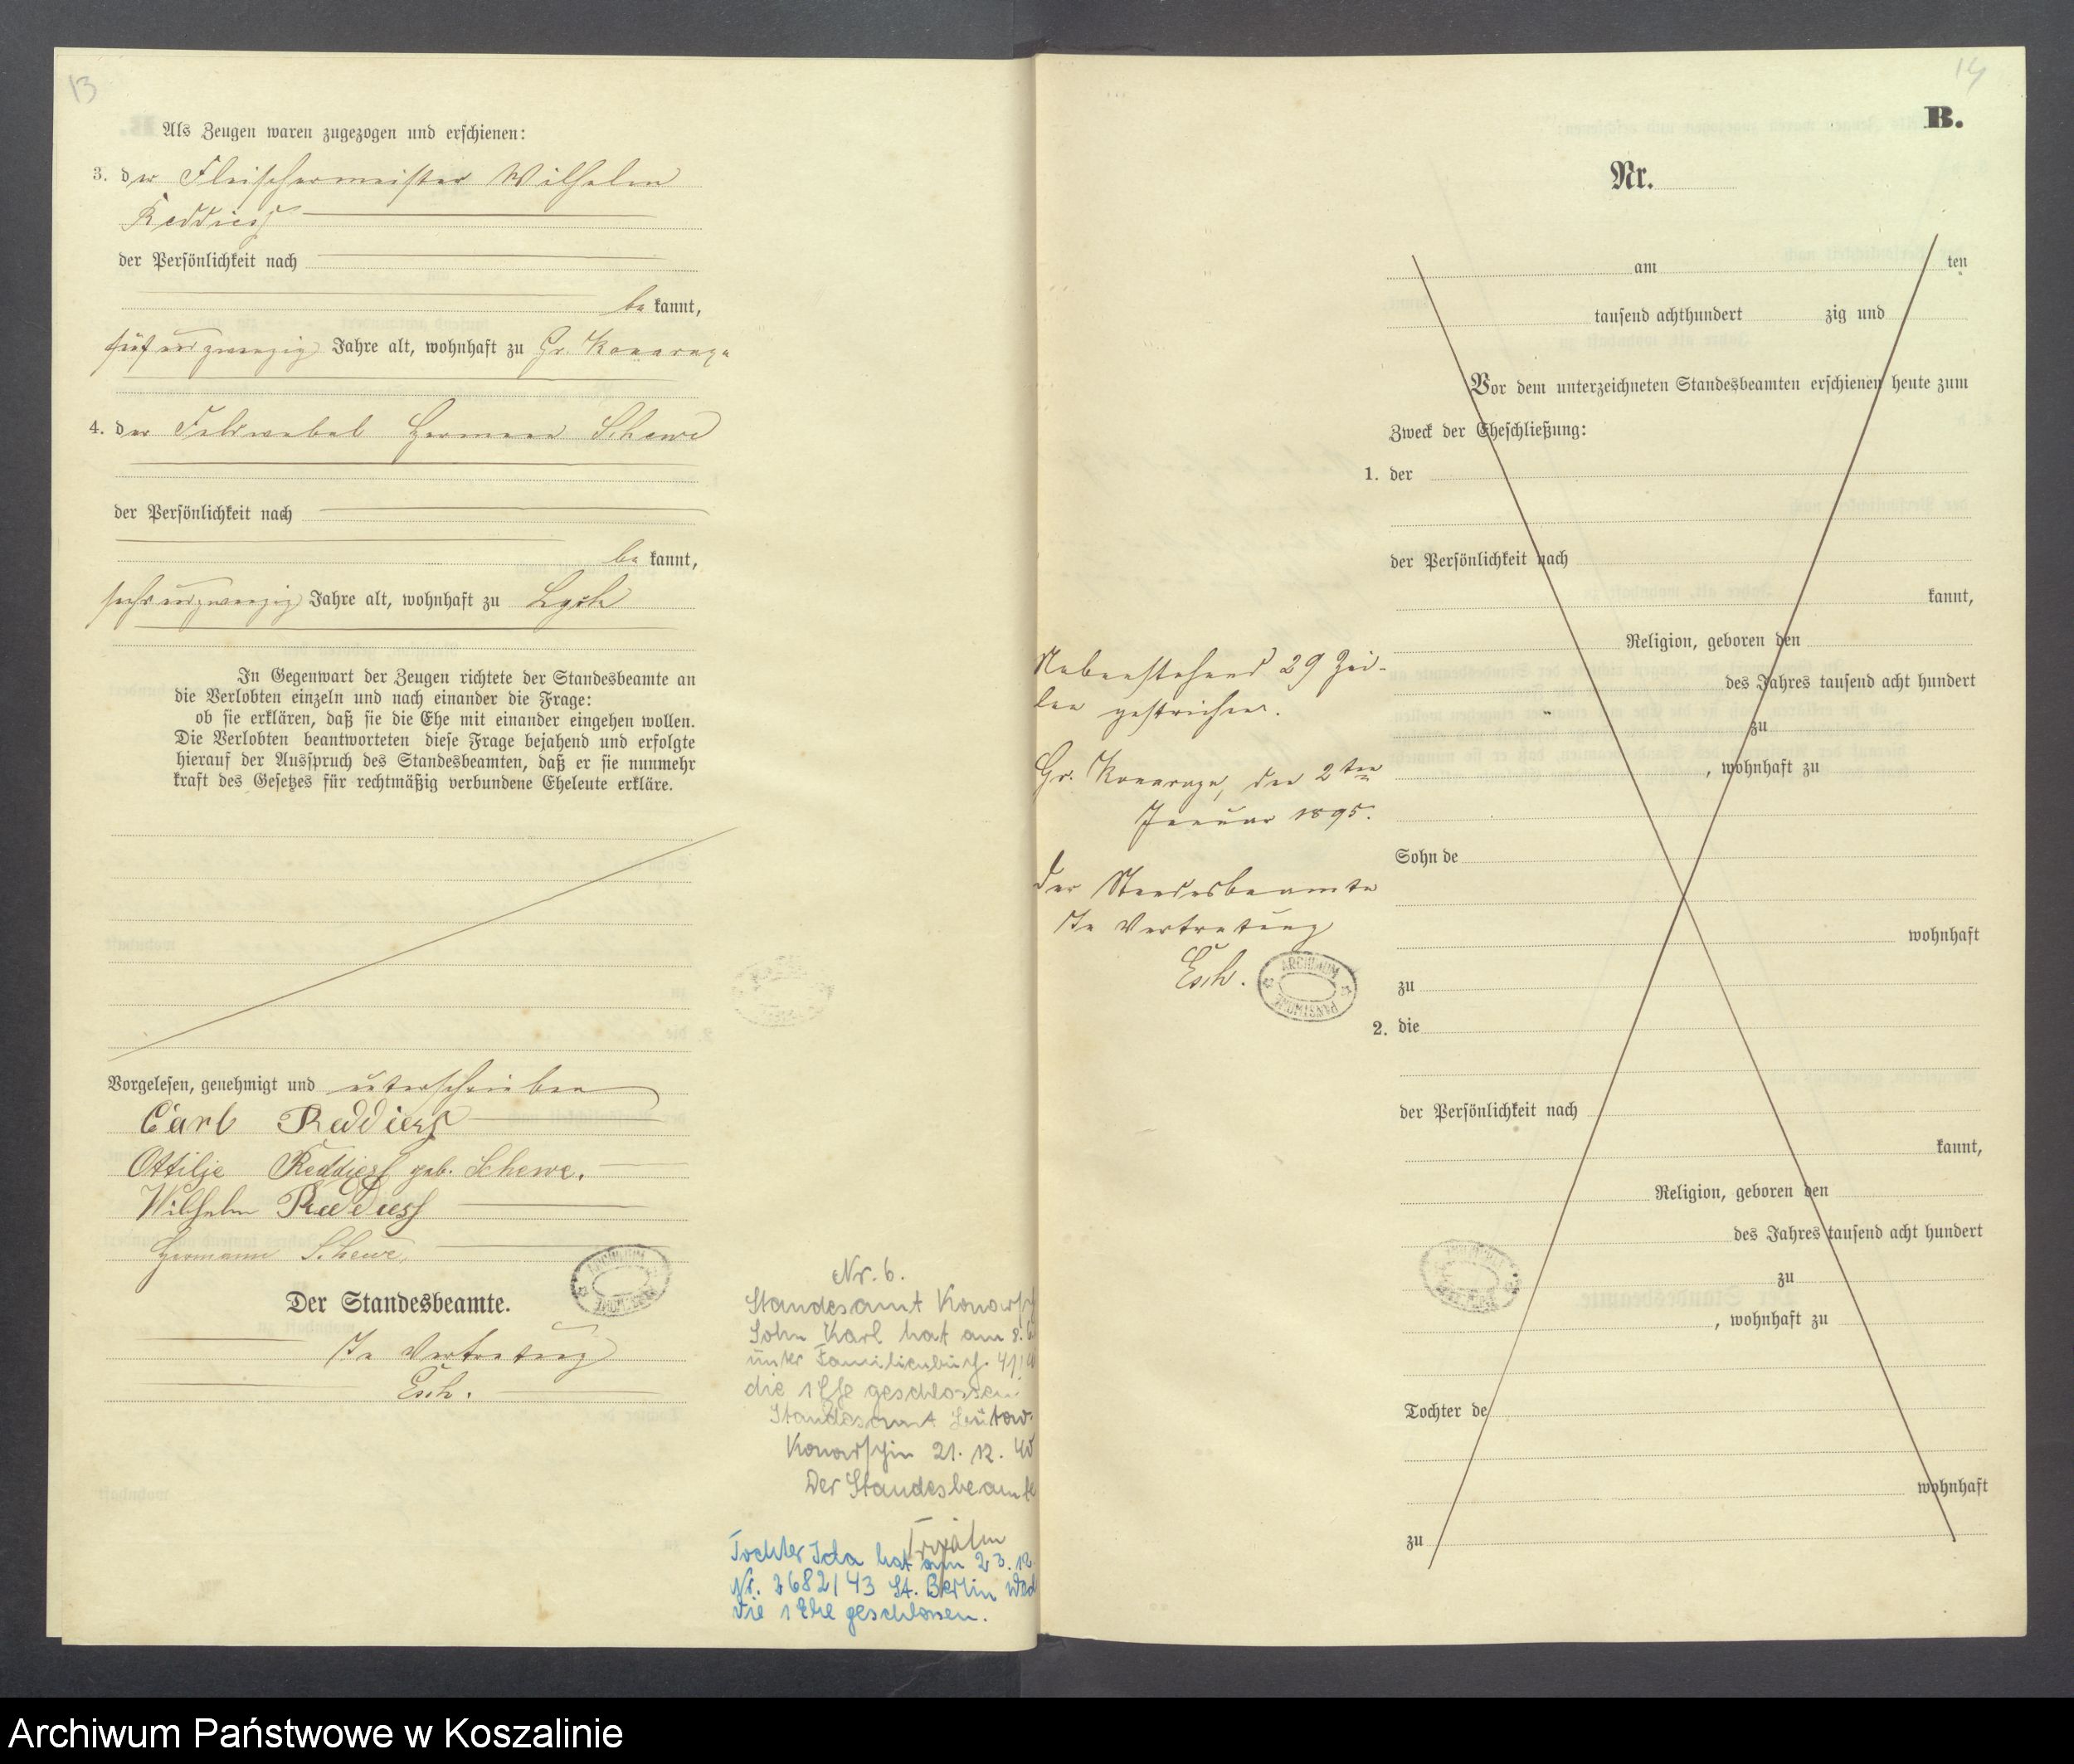 13
Als Zeugen waren zugezogen und erschienen:
3. der Fleischermeister Wilhelm
Reddiess
der Persönlichkeit nach
be kannt,
fünf und zwanzig Jahre alt, wohnhaft zu Gr.
4. der Feldwebel Hermann Schewe
der Persönlichkeit nach
be kannt,
sechs und zwanzig Jahre alt, wohnhaft zu Lyck
In Gegenwart der Zeugen richtete der Standesbeamte an
die Verlobten einzeln und nach einander die Frage:
ob sie erklären, daß sie die Ehe mit einander eingehen wollen.
Die Verlobten beantworteten diese Frage bejahend und erfolgte
hierauf der Ausspruch des Standesbeamten, daß er sie nunmehr
kraft des Gesetzes für rechtmäßig verbundene Eheleute erkläre.
Vorgelesen, genehmigt und unterschrieben
Carl Reddiess
Ottilje Reddiess geb. Schewe.
Wilhelm Reddiess
Hermann Schewe.
Der Standesbeamte.
In Vertretung
Esch.
Nr. 6.
Standesamt
Sohn Karl hat am 8.
unter Familienbuch
die 1 Ehe geschlossen.
Standesamt
21. 12. 40
Der Standesbeamte
Tochter Ida hat am 23. 12.
Nr. 2682/43 St. Berlin Wed
die 1 Ehe geschlossen.
14
B.
Nr.
am ten
tausend achthundert zig und
Vor dem unterzeichneten Standesbeamten erschienen heute zum
Zweck der Eheschließung:
1. der
der Persönlichkeit nach
kannt,
Religion, geboren den
des Jahres tausend acht hundert
zu
, wohnhaft zu
Sohn de
wohnhaft
zu
2. die
der Persönlichkeit nach
kannt,
Religion, geboren den
des Jahres tausend acht hundert
zu
, wohnhaft zu
Tochter de
wohnhaft
zu
Nebenstehend 29 Zei-
len gestrichen.
Gr. den 2ten
Januar 1895.
Der Standesbeamte
In Vertretung
Esch.
ARCHIWUM
PAŃSTWOWE
Archiwum Państwowe w Koszalinie